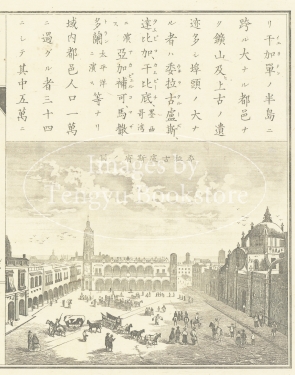 リ干加單ノ半島ニ
跨ル大ナル都邑ナ
ク鑛山及上古ノ遺
跡多シ埠頭ノ大ナ
ル者ハ委拉古盧斯
達比加、干比底、墨西哥灣
ニ濱亞加補可馬
多蘭太平洋ニ濱ス等ナリ
域内都邑人口一萬
ニ過グル者三十四
ニシテ其中五萬ニ
Images by
Tengyu Bookstore